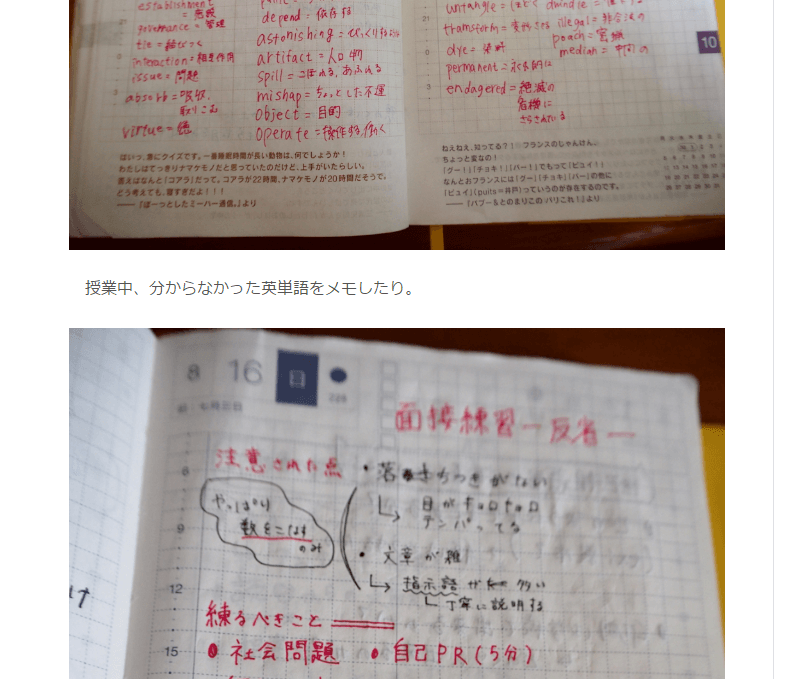 establishment
= 施設
governance = 管理
tie = 結びつく
interaction = 相互作用
issue = 問題
absorb = 吸収、
取りこむ
virtue = 徳
depend = 依存する
astonishing = びっくりする
artifact = 人口物
spill = こぼれる, あふれる
mishap = ちょっとした不運
object = 目的
operate = 操作する, 働く
はいっ、急にクイズです。一番睡眠時間が長い動物は、何でしょうか!
わたしはてっきりナマケモノだと思っていたのだけど、上手がいたらしい。
答えはなんと「コアラ」だって。コアラが22時間、ナマケモノが20時間だそうで。
どう考えても、寝すぎだよ!!!
——『ぼーっとしたミーハー通信。』より
untangle = ほどく dwindle =
transform = 変形させる illegal = 非合法の
dye = 染料 poach = 密猟
permanent = 永久的に median = 中間の
endagered = 絶滅の
危機に
さらされている
10
ねえねえ、知ってる?! フランスのじゃんけん。
ちょっと変なの!
「グー!」「チョキ!」「パー!」でもって「ピュイ!」
なんとおフランスには「グー」「チョキ」「パー」の他に
「ピュイ」(puits=井戸)っていうのが存在するのです。
——『パブー&とのまりこの パリこれ!』より
授業中、分からなかった英単語をメモしたり。
8 16 日
228
面接練習 — 反省 —
注意された点
・落ちつきがない
目がキョロキョロ
テンパってる
やっぱり
数をこなす
のみ
・文章が雑
指示語が 多い
丁寧に説明する
9
12
練るべきこと
15
・社会問題 ・自己PR(5分)